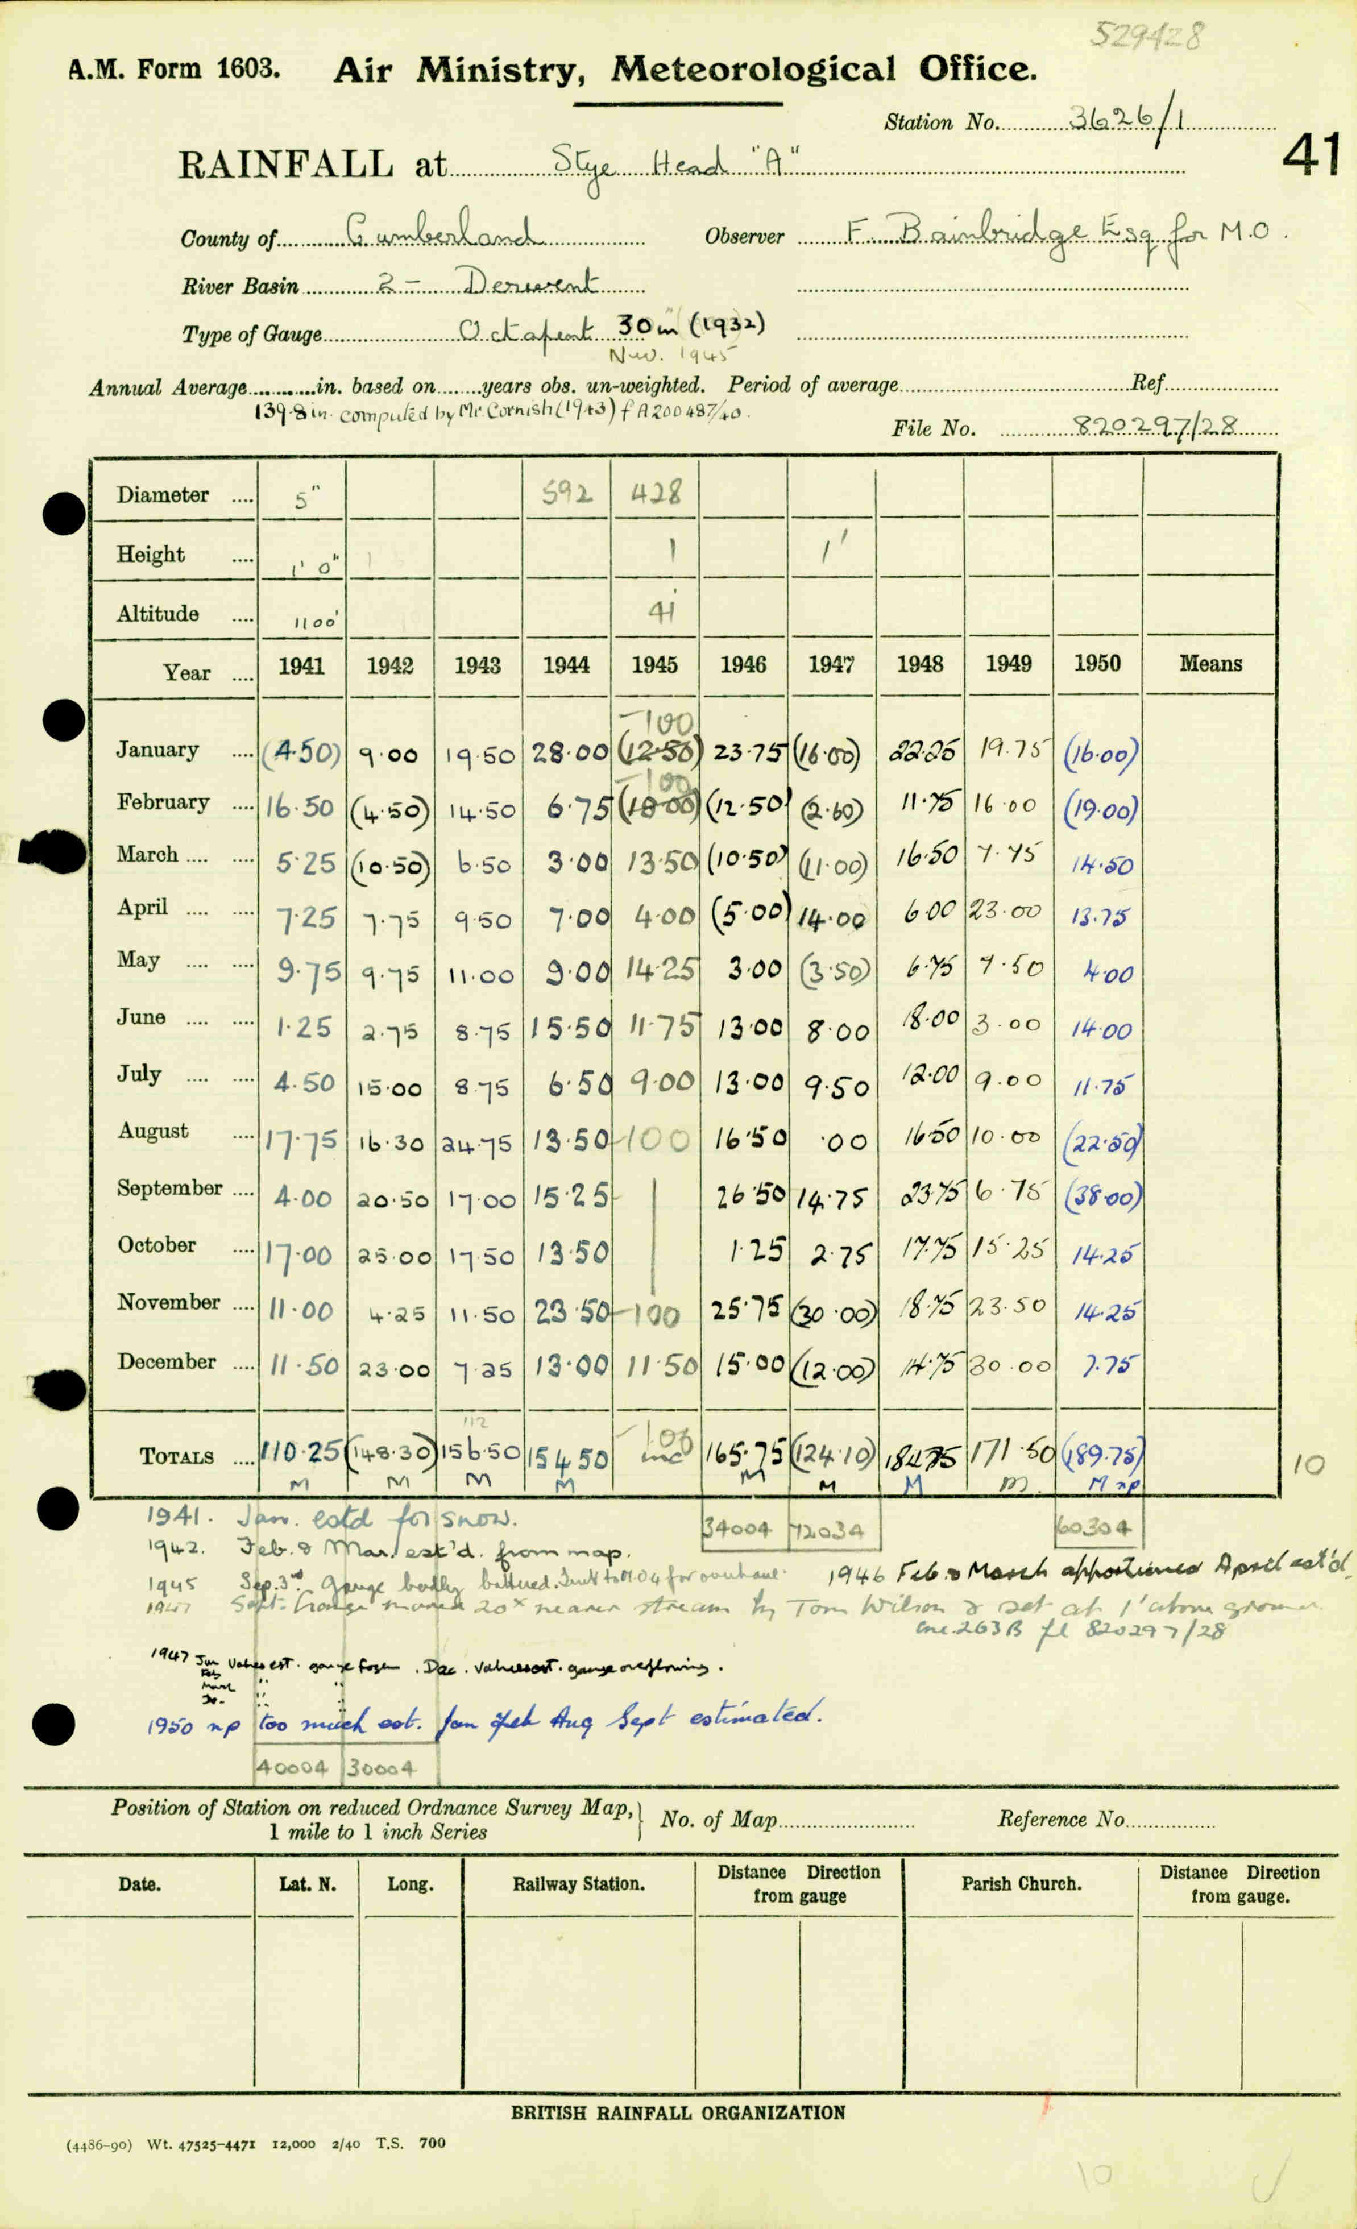 529428
A.M. Form 1603. Air Ministry, Meteorological Office.
Station No. 3626/1
41
RAINFALL at Stye Head "A"
County of Cumberland Observer F. Bainbridge Esq for M.O.
River Basin 2 - Derwent
Type of Gauge Octapent 30 in (1932)
Nov. 1945
Annual Average in. based on years obs. un-weighted. Period of average Ref
139.8 in. computed by Mr Cornish (1943) f A200487/40.
File No. 820297/28
Diameter 5" 592 428
Height 1' 0" 1 1'
Altitude 1100' 41
Year 1941 1942 1943 1944 1945 1946 1947 1948 1949 1950 Means
-100
January (4.50) 9.00 19.50 28.00 (12.50) 23.75 (16.00) 22.25 19.75 (16.00)
-100
February 16.50 (4.50) 14.50 6.75 (18.00) (12.50) (2.60) 11.75 16.00 (19.00)
March 5.25 (10.50) 6.50 3.00 13.50 (10.50) (11.00) 16.50 7.75 14.50
April 7.25 7.75 9.50 7.00 4.00 (5.00) 14.00 6.00 23.00 13.75
May 9.75 9.75 11.00 9.00 14.25 3.00 (3.50) 6.75 7.50 4.00
June 1.25 2.75 8.75 15.50 11.75 13.00 8.00 18.00 3.00 14.00
July 4.50 15.00 8.75 6.50 9.00 13.00 9.50 12.00 9.00 11.75
August 17.75 16.30 24.75 13.50 -100 16.50 .00 16.50 10.00 (22.50)
September 4.00 20.50 17.00 15.25 26.50 14.75 23.75 6.75 (38.00)
October 17.00 25.00 17.50 13.50 1.25 2.75 17.75 15.25 14.25
November 11.00 4.25 11.50 23.50 -100 25.75 (30.00) 18.75 23.50 14.25
December 11.50 23.00 7.25 13.00 11.50 15.00 (12.00) 14.75 30.00 7.75
112 -100
TOTALS 110.25 (148.30) 156.50 154.50 inc 165.75 (124.10) 184.75 171.50 (189.75) 10
M M M M M M M m M np
1941. Jan. estd for snow. 34004 72034 60304
1942. Feb. & Mar. est'd. from map.
1945 Sep. 3rd gauge badly battered. Sent to M.O.4 for overhaul. 1946 Feb & March apportioned April est'd.
1947 Sept. Gauge moved 20x nearer stream by Tom Wilson & set at 1' above ground
263B fl 820297/28
1947 Jan values est. gauge frozen. Dec. values est. gauge overflowing.
Feb " "
March " "
1950 np too much est. Jan Feb Aug Sept estimated.
40004 30004
Position of Station on reduced Ordnance Survey Map, } No. of Map Reference No.
1 mile to 1 inch Series
Date. Lat. N. Long. Railway Station. Distance from gauge Direction Parish Church. Distance Direction from gauge.
BRITISH RAINFALL ORGANIZATION
(4486-90) Wt. 47525-4471 12,000 2/40 T.S. 700
10